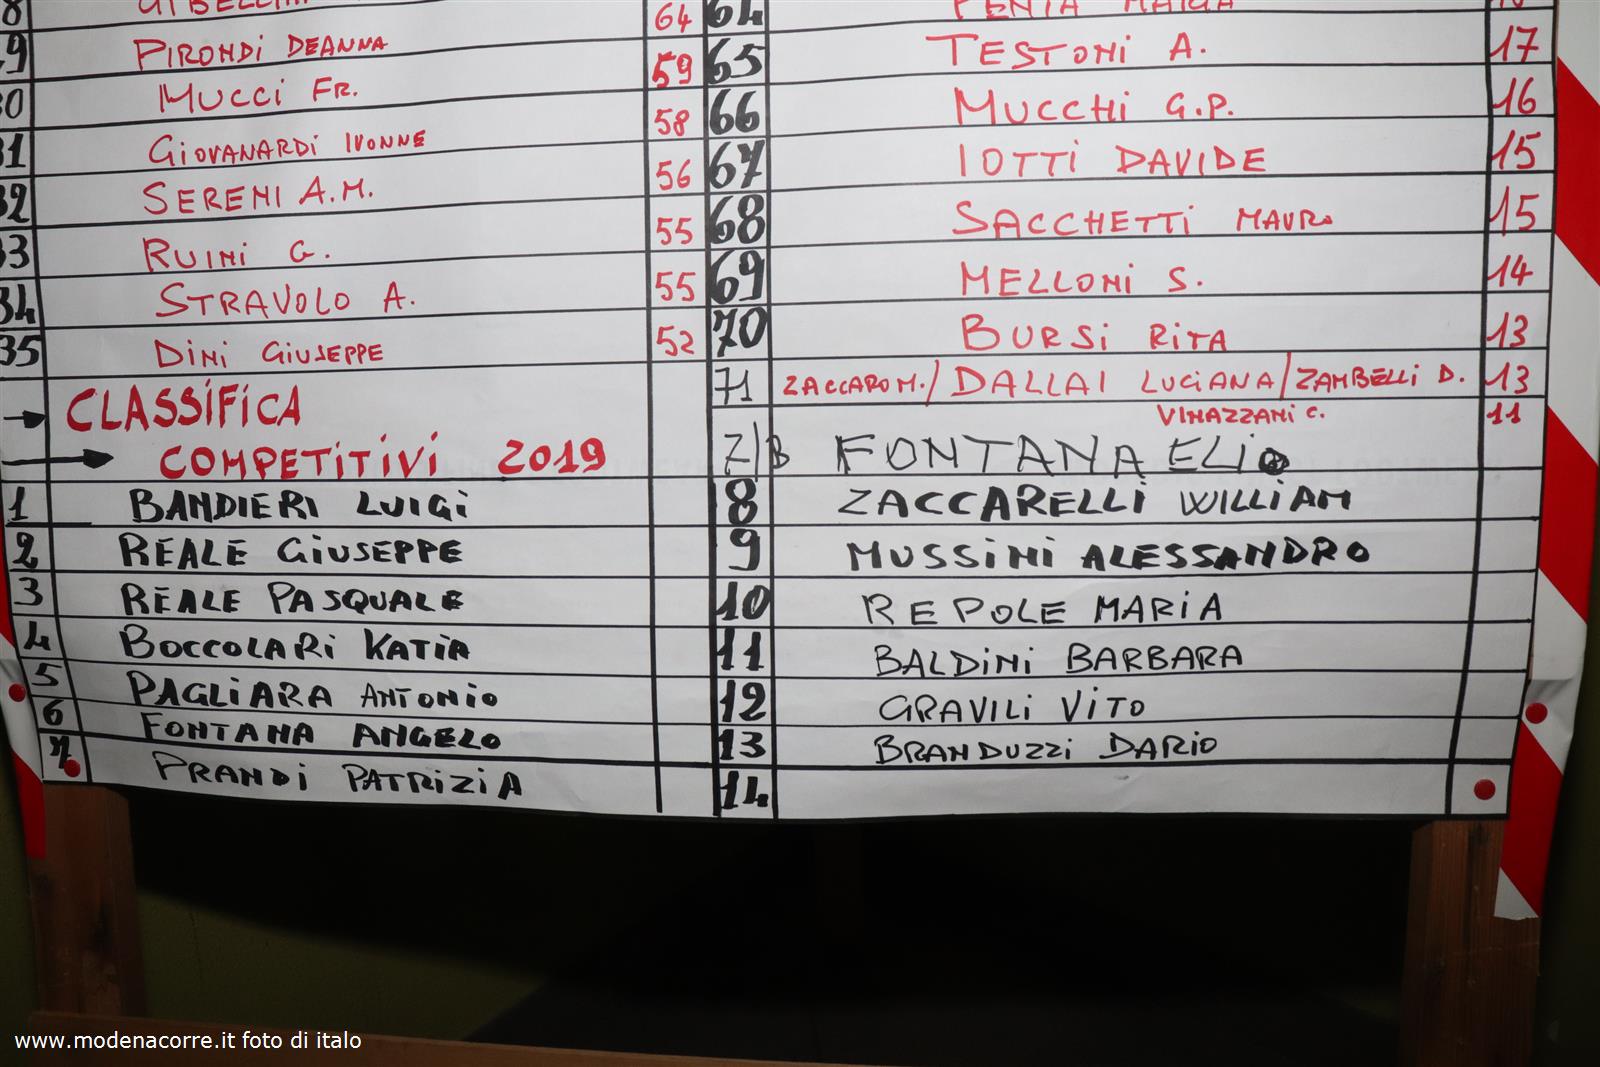 64 64
29 PIRONDI DEANNA 59 65 TESTONI A. 17
30 MUCCI FR. 58 66 MUCCHI G.P. 16
31 GIOVANARDI IVONNE 56 67 IOTTI DAVIDE 15
32 SERENI A.M. 55 68 SACCHETTI MAURO 15
33 RUINI G. 55 69 MELLONI S. 14
34 STRAVOLO A. 52 70 BURSI RITA 13
35 DINI GIUSEPPE 71 ZACCARO M./DALLAI LUCIANA/ZAMBELLI D. 13
VINAZZANI C. 11
CLASSIFICA
COMPETITIVI 2019 7/B FONTANA ELIO
1 BANDIERI LUIGI 8 ZACCARELLI WILLIAM
2 REALE GIUSEPPE 9 MUSSINI ALESSANDRO
3 REALE PASQUALE 10 REPOLE MARIA
4 BOCCOLARI KATIA 11 BALDINI BARBARA
5 PAGLIARA ANTONIO 12 GRAVILI VITO
6 FONTANA ANGELO 13 BRANDUZZI DARIO
7 PRANDI PATRIZIA 14
www.modenacorre.it foto di italo